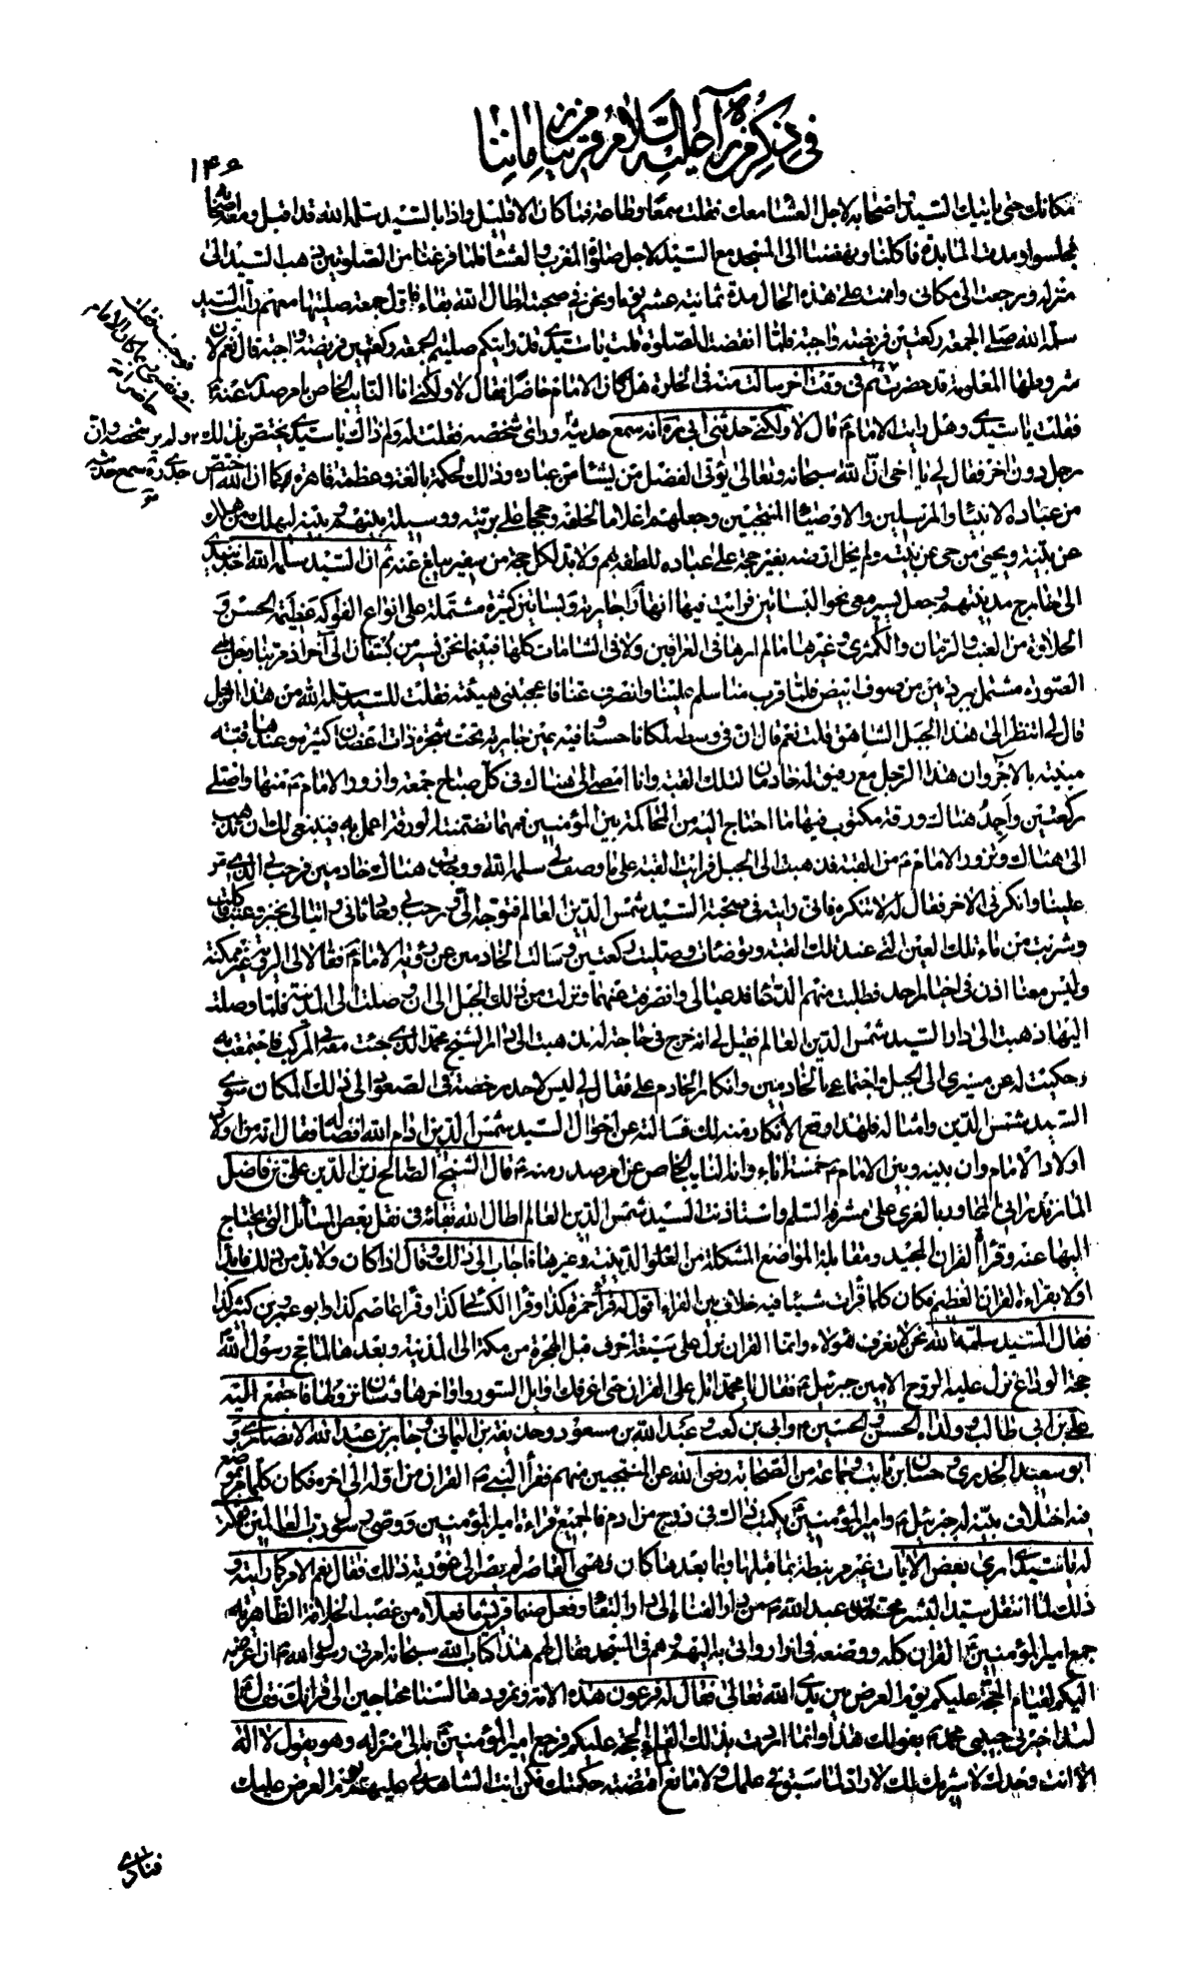 في ذكر من رآه عليه السلام قريبا من زماننا
١٤٦
مكانك حتى يأتيك السيد واصحابه لاجل العشا معك فقلت سمعا وطاعة فما كان الا قليل واذا بالسيد سلمه الله قد اقبل ومعه اصحابه
فجلسوا ومدت المائدة فاكلنا ونهضنا الى المسجد مع السيد لاجل صلوة المغرب والعشا فلما فرغنا من الصلوتين ذهب السيد الى
منزله ورجعت الى مكاني واقمت على هذه الحال مدة ثمانية عشر يوما ونحن في صحبته اطال الله بقاءه فاول جمعة صليتها معهم رايت السيد
سلمه الله صلى الجمعة ركعتين فريضة واجبة فلما انقضت الصلوة قلت يا سيدي قد رايتكم صليتم الجمعة ركعتين فريضة واجبة قال نعم لان
شروطها المعلومة قد حضرت ثم في وقت اخر سالت منه في الخلوة هل كان الامام حاضرا فقال لا ولكني انا النائب الخاص بامر صدر عنه ع
فقلت يا سيدي وهل رايت الامام ع قال لا ولكني حدثني ابي ره انه سمع حديثه وراى شخصه فقلت له ولم ذاك يا سيدي يختص بذلك
رجل دون اخر فقال لي يا اخي ان الله سبحانه وتعالى يؤتي الفضل من يشا من عباده وذلك لحكمة بالغة وعظمة قاهرة كما ان الله اختص
من عباده الانبيا والمرسلين والاوصيا المنتجبين وجعلهم اعلاما لخلقه وحججا على بريته ووسيلة بينهم وبينه ليهلك من هلك
عن بينة ويحيى من حي عن بينة ولم يخل ارضه بغير حجة على عباده للطفه بهم ولا بد لكل حجة من سفير يبلغ عنه ثم ان السيد سلمه الله اخذ بيدي
الى خارج مدينتهم وجعل يسير معي نحو البساتين فرايت فيها انهارا جارية وبساتين كثيرة مشتملة على انواع الفواكه عظيمة الحسن و
الحلاوة من العنب والرمان والكمثرى وغيرها ما لم ارها في العراقين ولا في الشامات كلها فبينما نحن نسير من بستان الى آخر اذ مر بنا رجل بهي
الصورة مشتمل ببردتين من صوف ابيض فلما قرب منا سلم علينا وانصرف عنا فاعجبتني هيئته فقلت للسيد سلمه الله من هذا الرجل
قال لي اتنظر الى هذا الجبل الشاهق قلت نعم قال ان في وسطه لمكانا حسنا وفيه عين جارية تحت شجرة ذات اغصان كثيرة وعندها قبة
مبنية بالآجر وان هذا الرجل مع رفيق له خادمان لتلك القبة وانا امضي الى هناك في كل صباح جمعة وازور الامام ع منها واصلي
ركعتين واجد هناك ورقة مكتوب فيها ما احتاج اليه من المحاكمة بين المؤمنين فمهما تضمنته الورقة اعمل به فينبغي لك ان تذهب
الى هناك وتزور الامام ع من القبة فذهبت الى الجبل فرايت القبة على ما وصف لي سلمه الله ووجدت هناك خادمين فرحب بي الذي مر
علينا وانكرني الآخر فقال له لا تنكره فاني رايته في صحبة السيد شمس الدين العالم فتوجه الي ورحب بي وحادثاني واتيا لي بخبز وعنب فاكلت
وشربت من ماء تلك العين التي عند تلك القبة وتوضات وصليت ركعتين وسالت الخادمين عن رؤية الامام ع فقالا لي الرؤية غير ممكنة
وليس معنا اذن في اخبار احد فطلبت منهم الدعا فدعيا لي وانصرفت عنهما ونزلت من ذلك الجبل الى ان وصلت الى المدينة فلما وصلت
اليها ذهبت الى دار السيد شمس الدين العالم فقيل لي انه خرج في حاجة له فذهبت الى دار الشيخ محمد الذي جئت معه في المركب فاجتمعت به
وحكيت له عن مسيري الى الجبل واجتماعي بالخادمين وانكار الخادم علي فقال لي ليس لاحد رخصة في الصعود الى ذلك المكان سوى
السيد شمس الدين وامثاله فلهذا وقع الانكار منه لك فسالته عن احوال السيد شمس الدين ادام الله افضاله فقال انه من اولاد
اولاد الامام وان بينه وبين الامام ع خمسة اباء وانه النايب الخاص عن امر صدر منه ع قال الشيخ الصالح زين الدين علي بن فاضل
المازندراني المجاور بالغري على مشرفه السلم واستاذنت السيد شمس الدين العالم اطال الله بقائه في نقل بعض المسائل التي يحتاج
اليها عنه وقراءة القران المجيد ومقابلة المواضع المشكلة من العلوم الدينية وغيرها فاجاب الى ذلك وقال اذا كان ولا بد من ذلك فابدا
اولا بقراءة القران العظيم فكان كلما قرات شيئا فيه خلاف بين القراء اقول له قرا حمزة كذا وقرا الكسائي كذا وقرا عاصم كذا وابو عمرو بن كثير كذا
فقال السيد سلمه الله نحن لا نعرف هؤلاء وانما القران نزل على سبعة احرف قبل الهجرة من مكة الى المدينة وبعدها لما حج رسول الله
حجة الوداع نزل عليه الروح الامين جبرئيل ع فقال يا محمد اتل علي القران حتى اعرفك اوايل السور واواخرها وشان نزولها فاجتمع اليه
علي بن ابي طالب وولداه الحسن والحسين ع وابي بن كعب وعبد الله بن مسعود وحذيفة بن اليماني وجابر بن عبد الله الانصاري و
ابو سعيد الخدري وحسان بن ثابت وجماعة من الصحابة رضوان الله عن المنتجبين منهم فقرا النبي ص القران من اوله الى اخره فكان كلما مر بموضع
فيه اختلاف بينه له جبرئيل ع وامير المؤمنين ع يكتب ذاك في درج من ادم فالجميع قراءة امير المؤمنين ووصي رسول رب العالمين فقلت
له يا سيدي ارى بعض الايات غير مرتبطة بما قبلها وبما بعدها كان فهمي القاصر لم يصر الى غورية ذلك فقال نعم الامر كما رايته و
ذلك لما انتقل سيد البشر محمد بن عبد الله ص من دار الفناء الى دار البقاء وفعل صنما قريش ما فعلاه من غصب الخلافة الظاهرية
جمع امير المؤمنين ع القران كله ووضعه في ازار واتى به اليهم وهم في المسجد فقال لهم هذا كتاب الله سبحانه امرني رسول الله ص ان اعرضه
اليكم لقيام الحجة عليكم يوم العرض بين يدي الله تعالى فقال له فرعون هذه الامة ونمرودها لسنا محتاجين الى قرانك فقال ع
لقد اخبرني حبيبي محمد ص بقولك هذا وانما اردت بذلك القاء الحجة عليكم فرجع امير المؤمنين ع به الى منزله وهو يقول لا اله
الا انت وحدك لا شريك لك لا راد لما سبق في علمك ولا مانع لما اقتضته حكمتك فكن انت الشاهد لي عليهم يوم العرض عليك
فنادى